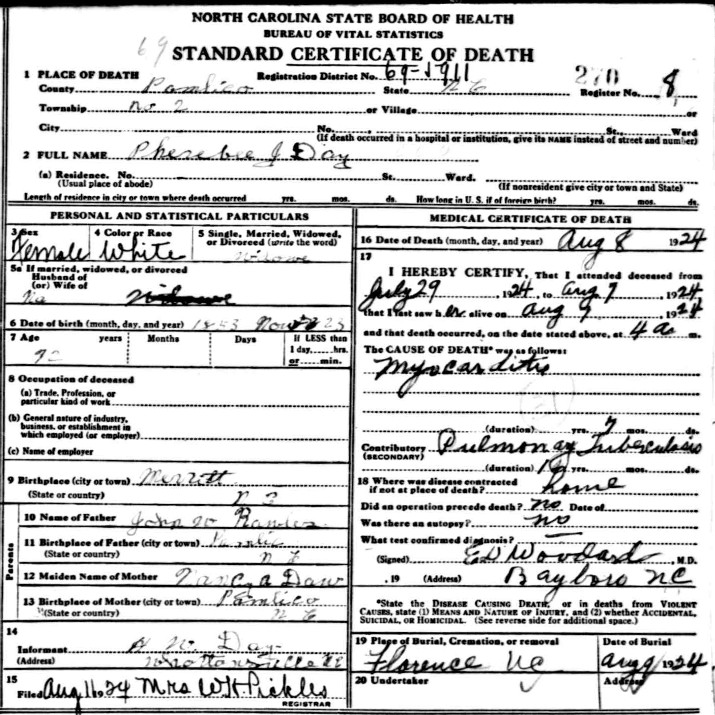 NORTH CAROLINA STATE BOARD OF HEALTH
BUREAU OF VITAL STATISTICS
69 STANDARD CERTIFICATE OF DEATH
1 PLACE OF DEATH Registration District No. 69-1911 270 8
County Pamlico State N C Register No.
Township No 2 or Village or
City No. St., Ward
(If death occurred in a hospital or institution, give its NAME instead of street and number)
2 FULL NAME Pherebee J Day
(a) Residence. No. St. Ward.
(Usual place of abode) (If nonresident give city or town and State)
Length of residence in city or town where death occurred yrs. mos. ds. How long in U. S. if of foreign birth? yrs. mos. ds.
PERSONAL AND STATISTICAL PARTICULARS
3 Sex 4 Color or Race 5 Single, Married, Widowed, or Divorced (write the word)
Female White Widowe
5a If married, widowed, or divorced
Husband of
(or) Wife of
Na Widowe
6 Date of birth (month, day, and year) 1853 Nov 23
7 Age years Months Days If LESS than
1 day,......hrs.
or......min.
8 Occupation of deceased
(a) Trade, Profession, or
particular kind of work
(b) General nature of industry,
business, or establishment in
which employed (or employer)
(c) Name of employer
9 Birthplace (city or town) Merritt
(State or country) N C
10 Name of Father John W
Parents
11 Birthplace of Father (city or town) Pamlic
(State or country) N C
12 Maiden Name of Mother Daw
13 Birthplace of Mother (city or town) Pamlico
(State or country) N C
14
Informant W. Day
(Address)
15
Filed Aug 11 1924 Mrs W H Pickles
REGISTRAR
MEDICAL CERTIFICATE OF DEATH
16 Date of Death (month, day, and year) Aug 8 1924
17
I HEREBY CERTIFY, That I attended deceased from
July 29, 1924, to Aug 7, 1924
that I last saw her alive on Aug 1924
and that death occurred, on the date stated above, at 4 a m.
The CAUSE OF DEATH* was as follows:
Myocarditis
(duration) yrs. 7 mos. ds.
Contributory Pulmonay Tuberculosis
(SECONDARY)
(duration) yrs. mos. ds.
18 Where was disease contracted
if not at place of death? home
Did an operation precede death? no Date of
Was there an autopsy? no
What test confirmed diagnosis?
(Signed) E D Woodard, M.D.
, 19 (Address) Bayboro NC
*State the DISEASE CAUSING DEATH, or in deaths from VIOLENT
CAUSES, state (1) MEANS AND NATURE OF INJURY, and (2) whether ACCIDENTAL,
SUICIDAL, OR HOMICIDAL. (See reverse side for additional space.)
19 Place of Burial, Cremation, or removal Date of Burial
Florence NC Aug 9 1924
20 Undertaker Address